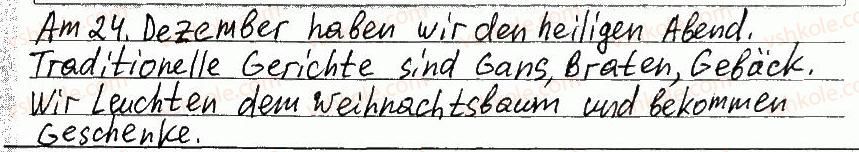 Am 24. Dezember haben wir den heiligen Abend.
Traditionelle Gerichte sind Gans, Braten, Gebäck.
Wir Leuchten dem Weihnachtsbaum und bekommen
Geschenke.